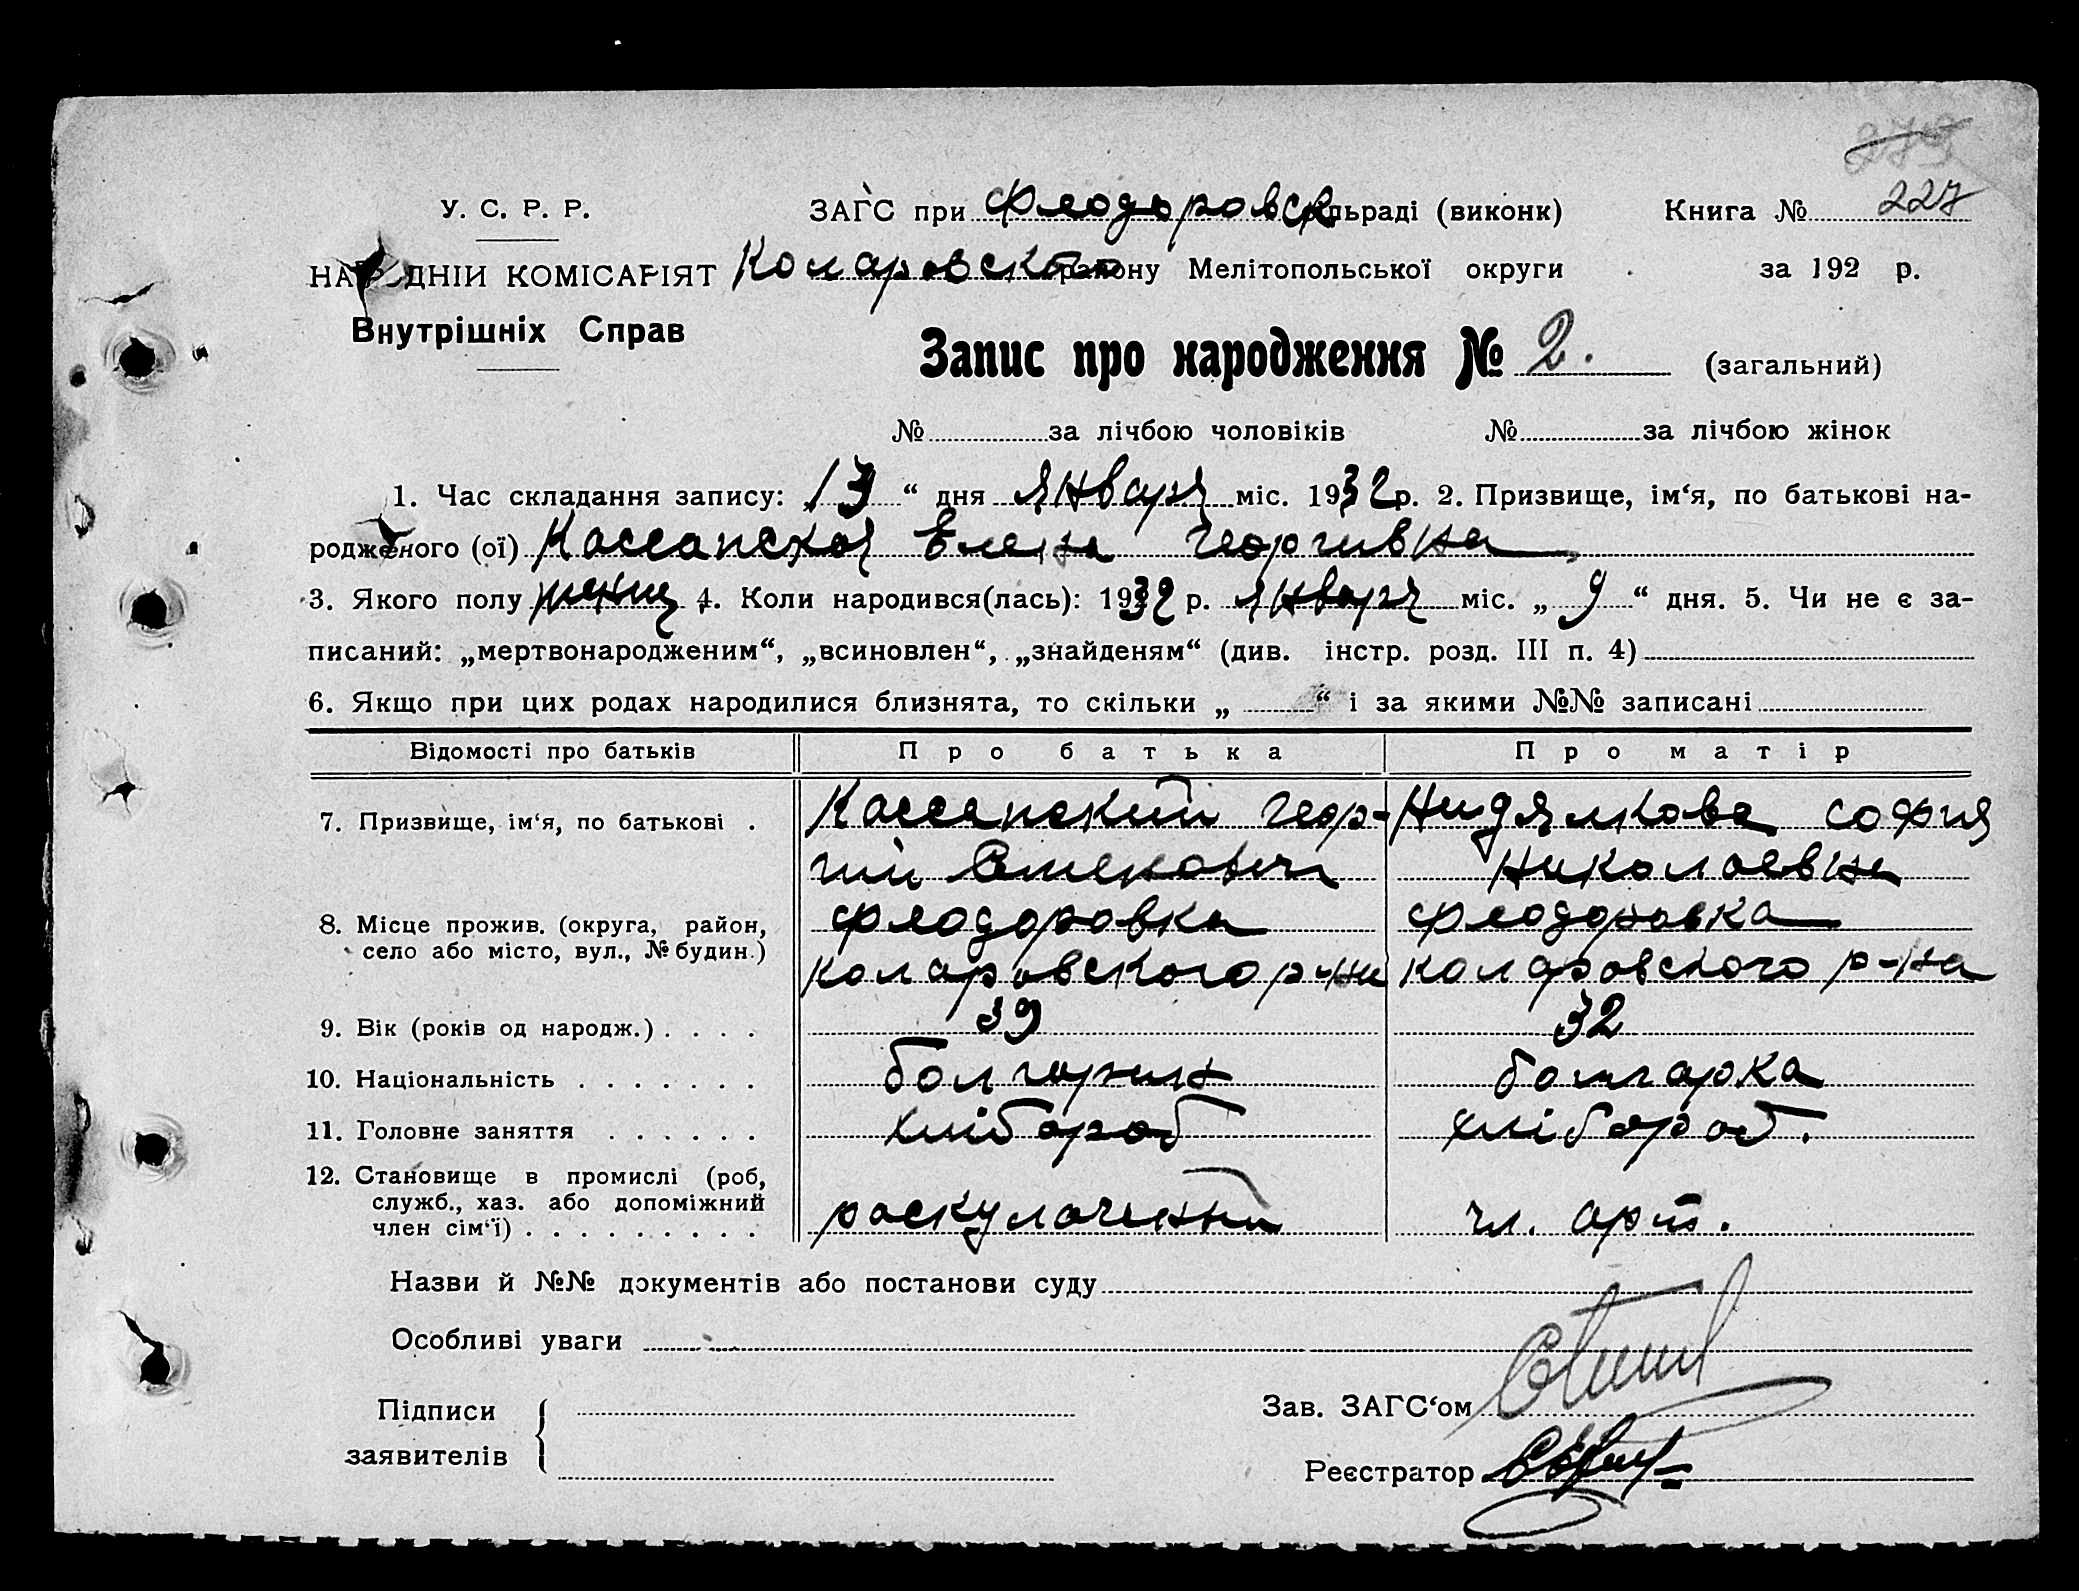 279
У. С. Р. Р. ЗАГС при Феодоровск ільраді (виконк) Книга № 227
НАРОДНІЙ КОМІСАРІЯТ Коларовского району Мелітопольської округи за 192 р.
Внутрішніх Справ
Запис про народження № 2. (загальний)
№ за лічбою чоловіків № за лічбою жінок
1. Час складання запису: 13 “ дня Января міс. 1932 р. 2. Призвище, ім‘я, по батькові на-
родженого (ої) Кассапская Елена Георгивна
3. Якого полу женщ 4. Коли народився(лась): 1932 р. Января міс. „ 9 “ дня. 5. Чи не є за-
писаний: „мертвонародженим“, „всиновлен“, „знайденям“ (див. інстр. розд. III п. 4)
6. Якщо при цих родах народилися близнята, то скільки „ “ і за якими №№ записані
Відомості про батьків Про батька Про матір
7. Призвище, ім‘я, по батькові . Кассапский Геор- Нидялкова София
гий Николаевна
8. Місце прожив. (округа, район, Феодоровка Феодоровка
село або місто, вул., № будин.) Коларовского р-на Коларовского р-на
9. Вік (років од народж.) . . . . 39 32
10. Національність . . . . . . . болгарин болгарка
11. Головне заняття . . . . . . хлібороб хлібороб.
12. Становище в промислі (роб,
служб., хаз. або допоміжний
член сім‘ї) . . . . . . . . . раскулачений чл. арт.
Назви й №№ документів або постанови суду
Особливі уваги
Підписи Зав. ЗАГС‘ом
заявителів Реєстратор